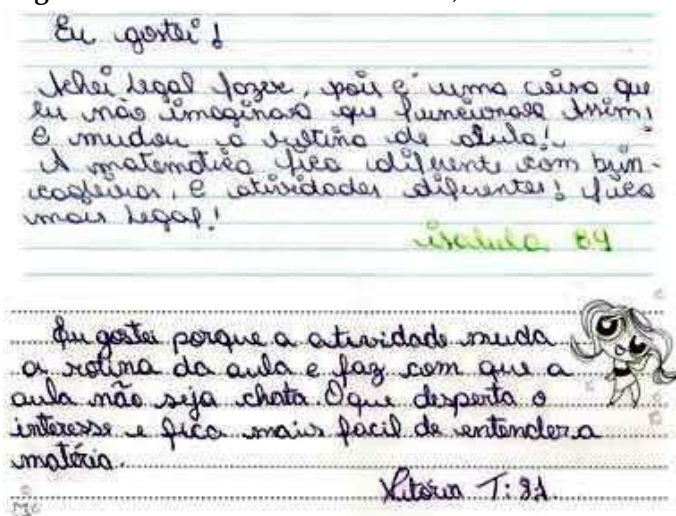 Eu gostei!
Achei legal fazer, pois é uma coisa que
eu não imaginava que funcionasse assim!
E mudou a rotina de aula!
A matemática fica diferente com brin-
cadeiras, e atividades diferentes! fica
mais legal!
Eu gostei porque a atividade muda
a rotina da aula e faz com que a
aula não seja chata. O que desperta o
interesse e fica mais facil de entender a
matéria.
Vitória T: 81